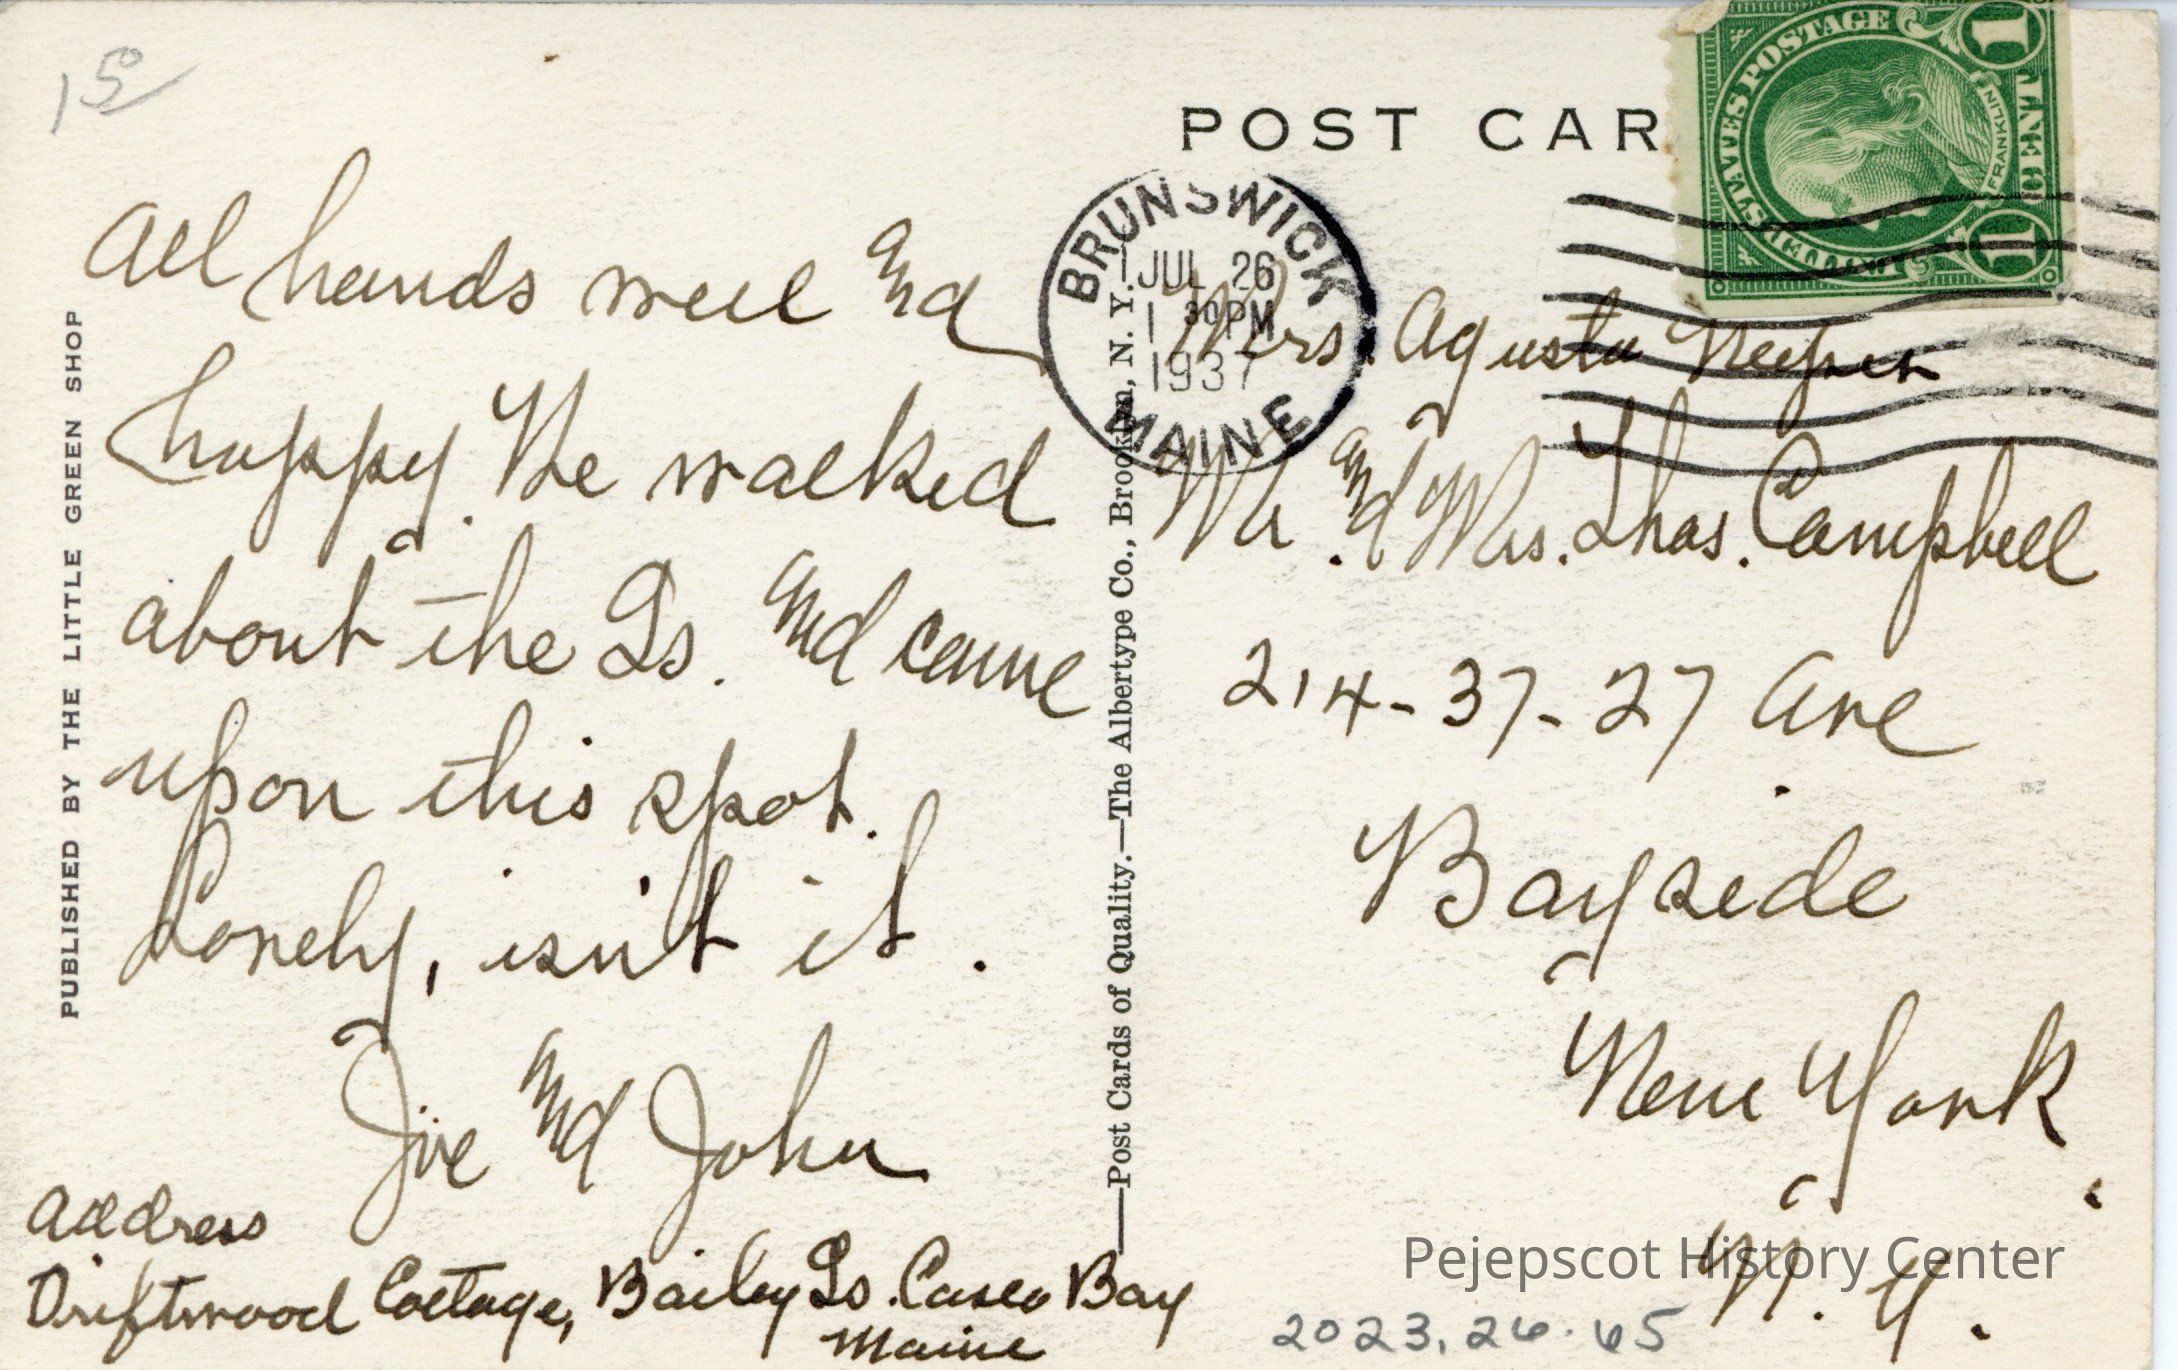 15
All hands well and
happy. We walked
about the Is. and came
upon this spot.
Lonely, isn't it.
Joe and John
Address
Driftwood Cottage, Bailey Is. Casco Bay
Maine
PUBLISHED BY THE LITTLE GREEN SHOP
—Post Cards of Quality.—The Albertype Co., Brooklyn, N. Y.
POST CAR
BRUNSWICK
JUL 26
1 30 PM
1937
MAINE
UNITED STATES POSTAGE
FRANKLIN
1 CENT 1
Mrs. Agusta
Mr. and Mrs. Thos. Campbell
214-37-27 Ave
Bayside
New York
N. Y.
Pejepscot History Center
2023.26.65